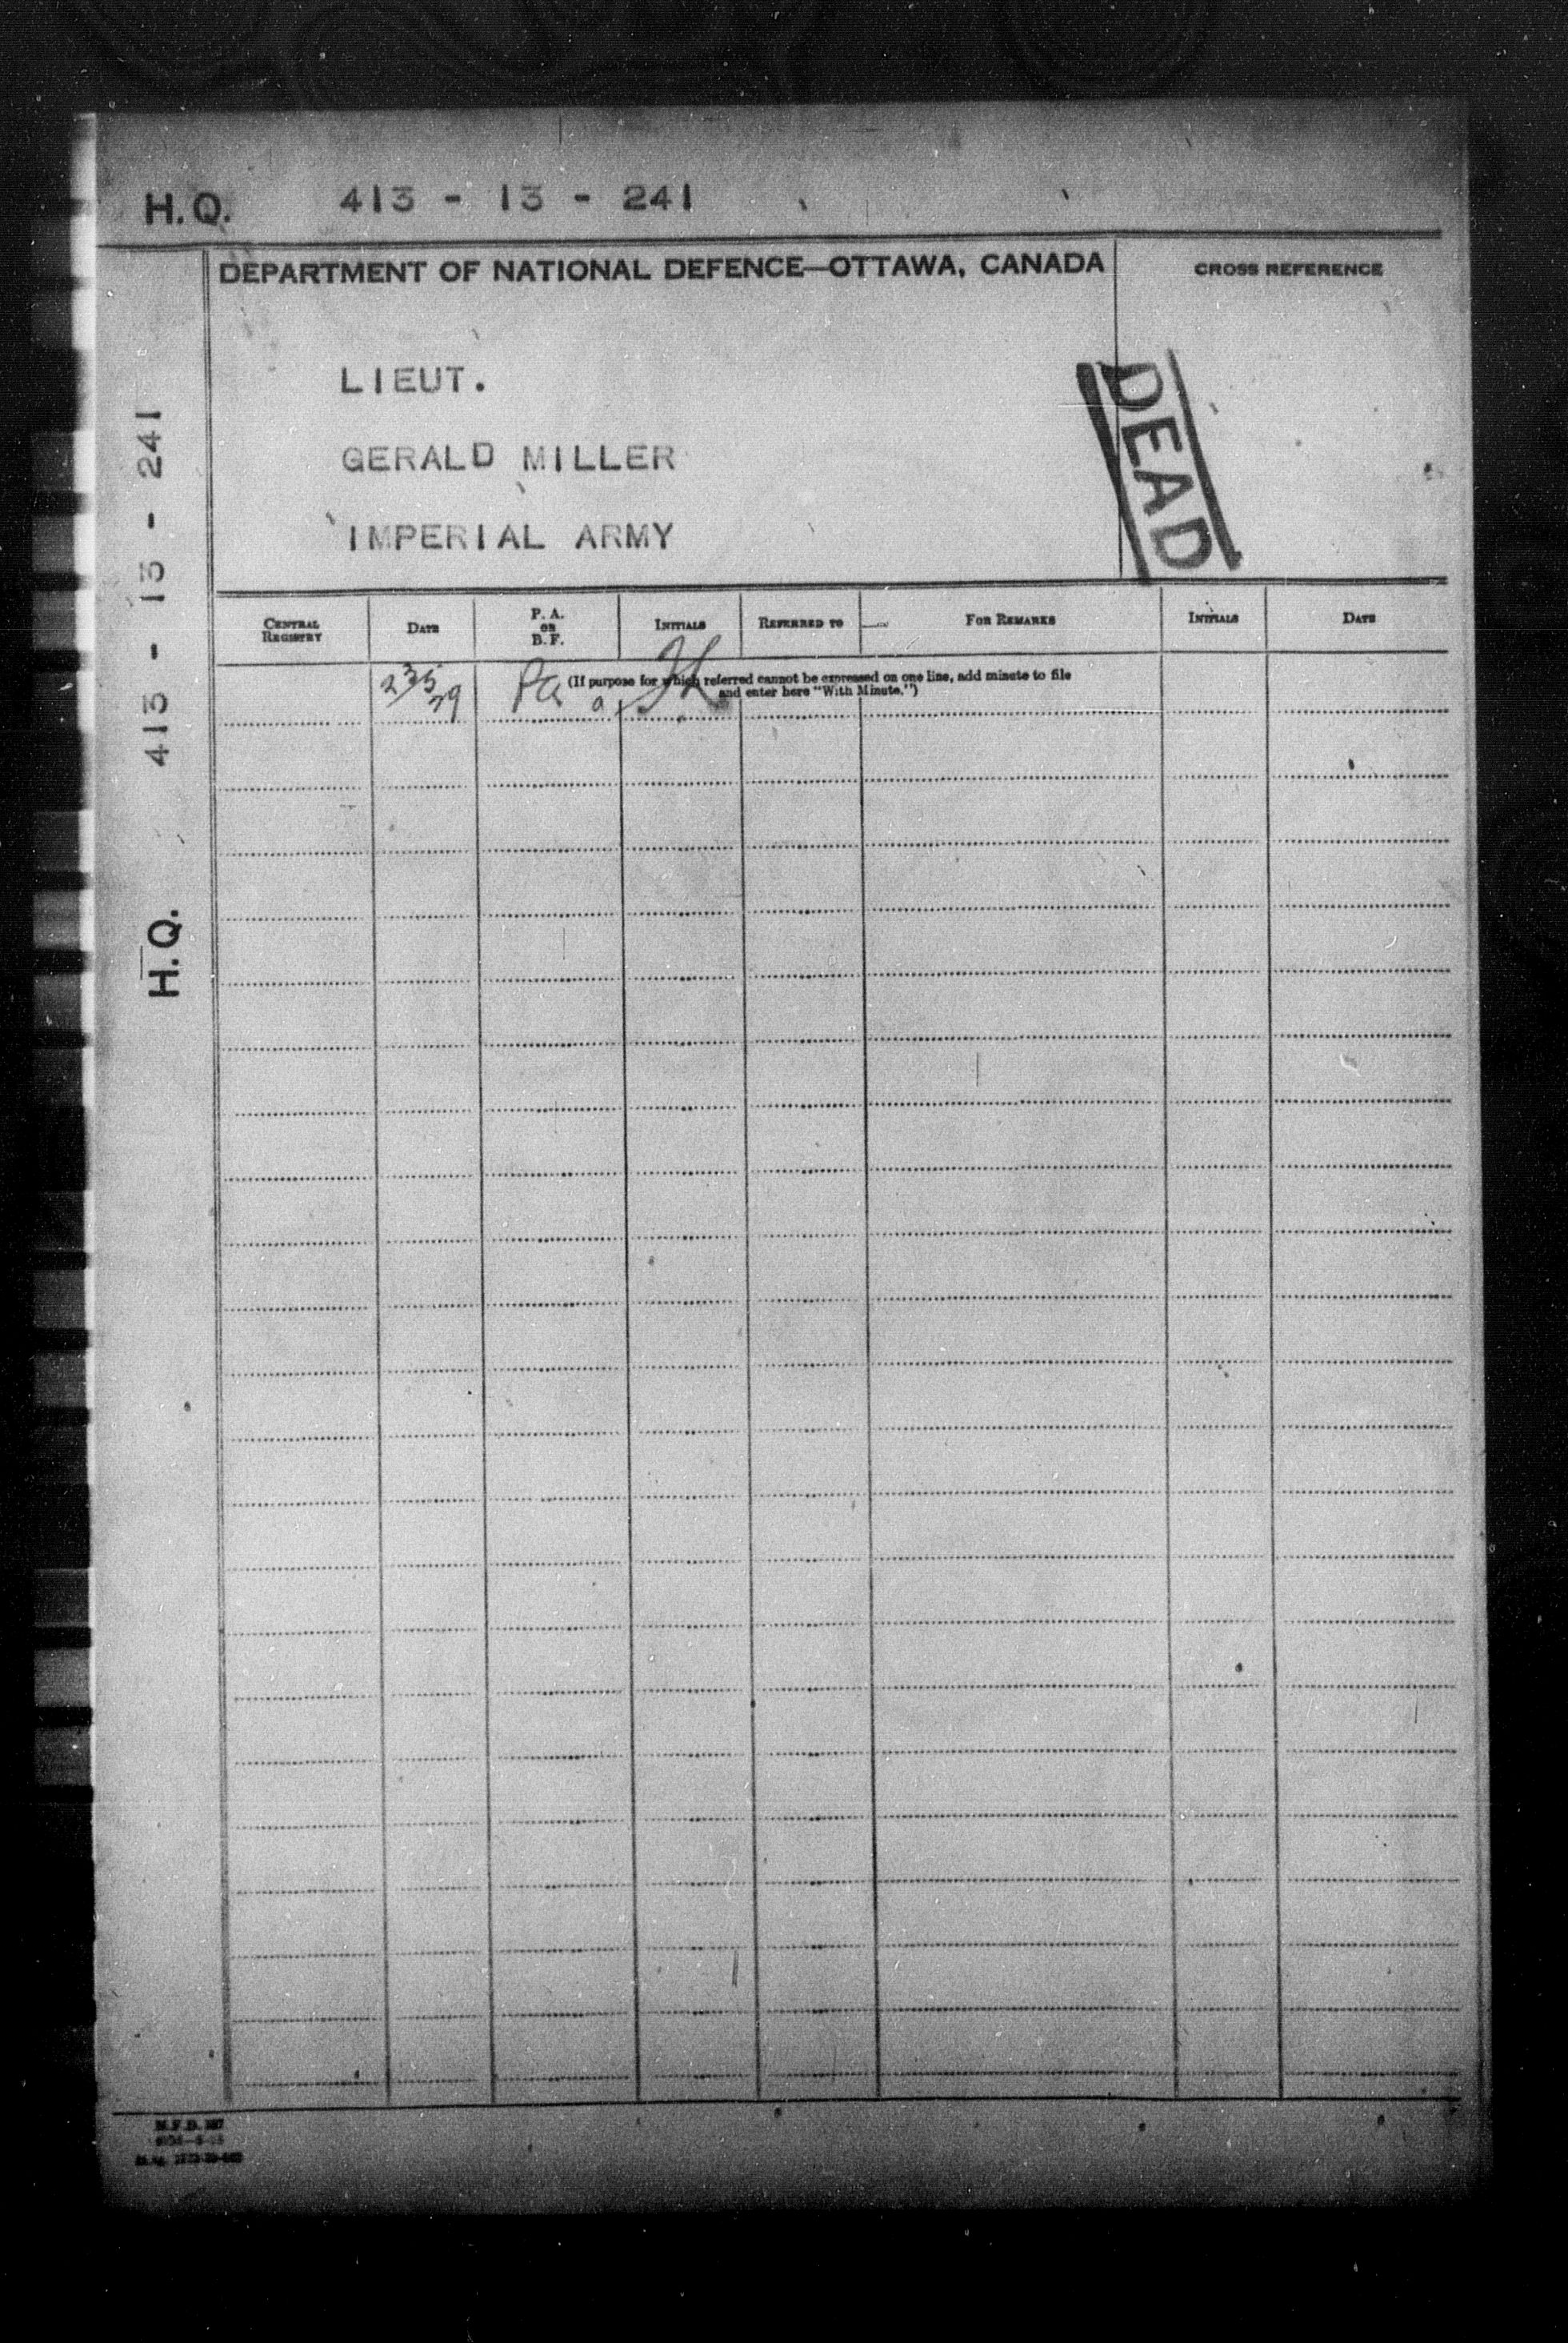 H.Q. 413 - 13 - 241
DEPARTMENT OF NATIONAL DEFENCE—OTTAWA, CANADA
CROSS REFERENCE
LIEUT.
GERALD MILLER
IMPERIAL ARMY
DEAD
H.Q. 413 - 13 - 241
CENTRAL REGISTRY
DATE
P. A. OR B. F.
INITIALS
REFERRED TO
FOR REMARKS
INITIALS
DATE
(If purpose for which referred cannot be expressed on one line, add minute to file
and enter here "With Minute.")
Pa